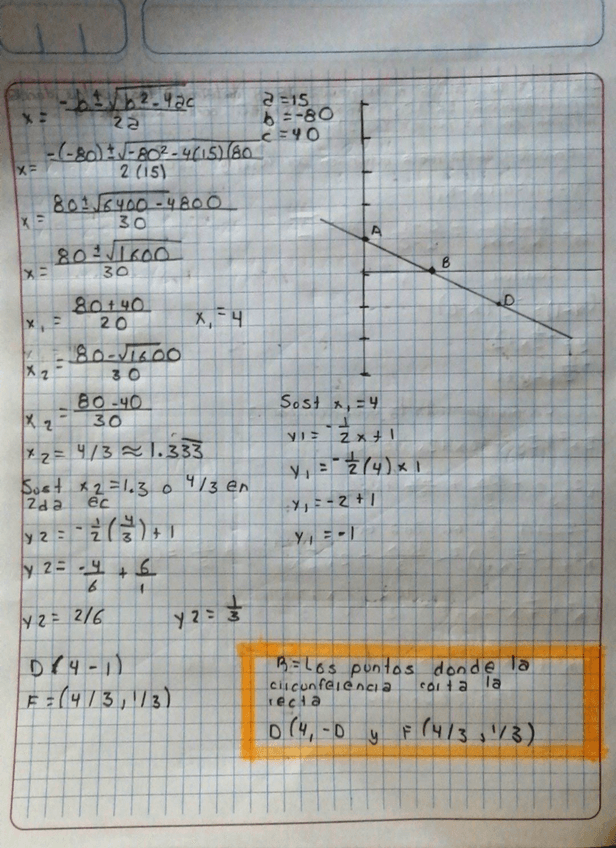 x = -b ± √b² - 4ac / 2a
a = 15
b = -80
c = 40
x = -(-80) ± √-80² - 4(15)(80 / 2(15)
x = 80 ± √6400 - 4800 / 30
x = 80 ± √1600 / 30
x₁ = 80 + 40 / 20    x₁ = 4
x₂ = 80 - √1600 / 30
x₂ = 80 - 40 / 30
x₂ = 4/3 ≈ 1.333
Sost x₂ = 1.3 o 4/3 en
2da ec
y2 = -1/2 (4/3) + 1
y2 = -4/6 + 6/1
y2 = 2/6    y2 = 1/3
D(4 - 1)
F = (4/3, 1/3)
A
B
D
Sost x₁ = 4
y1 = -1/2 x + 1
y₁ = -1/2 (4) x 1
y₁ = -2 + 1
y₁ = -1
R = Los puntos donde la
circunferencia corta la
recta
D(4, -D y F(4/3, 1/3)